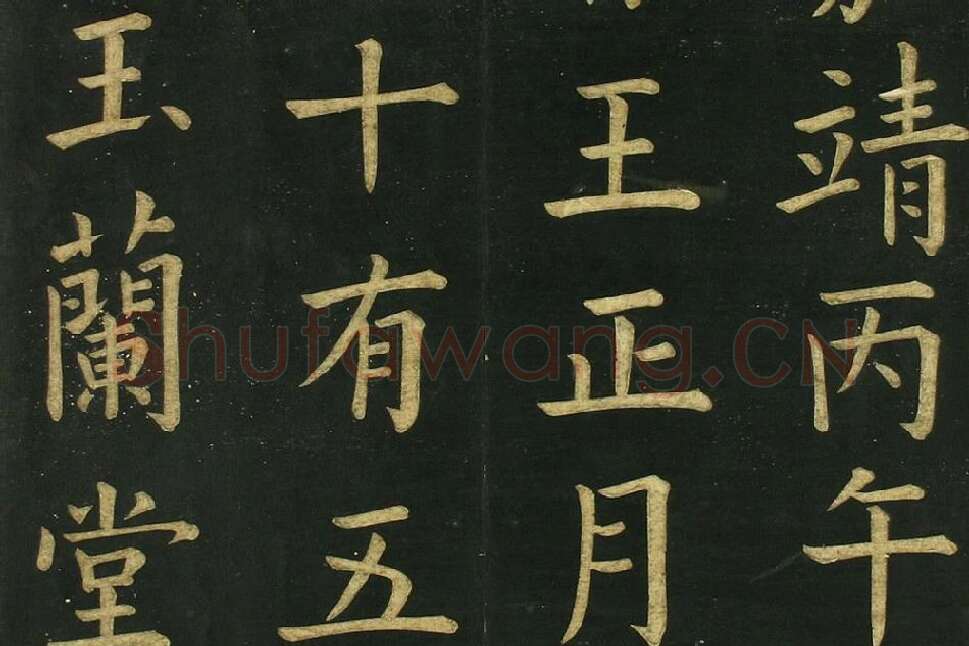 靖丙午
王正月
十有五
玉蘭堂
Shufawang.CN